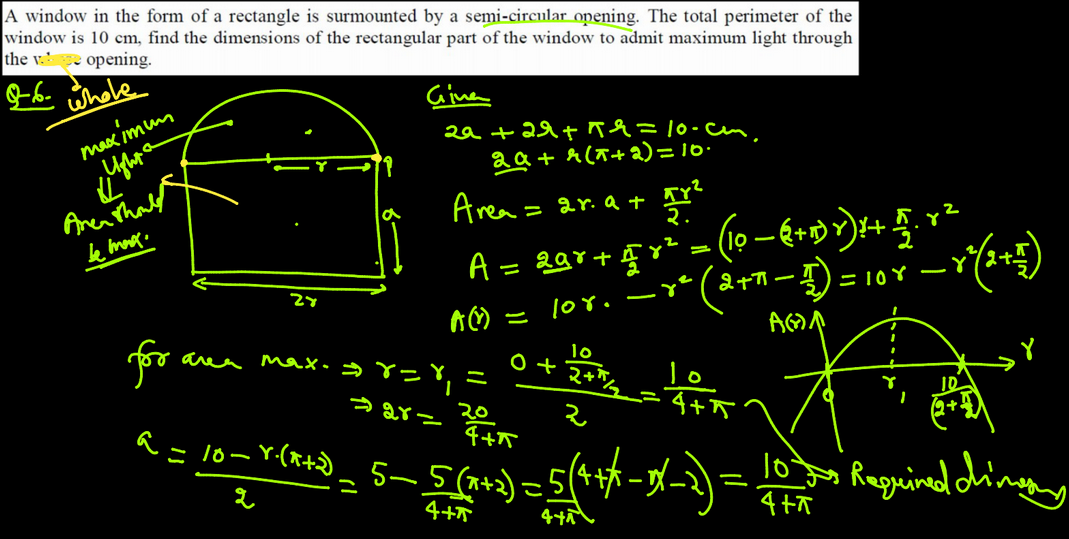 A window in the form of a rectangle is surmounted by a semi-circular opening. The total perimeter of the
window is 10 cm, find the dimensions of the rectangular part of the window to admit maximum light through
the opening.
Q-6. whole
maximum
light
⇓
Area should
be max.
r
a
2r
Given
2a + 2r + πr = 10 cm.
2a + r(π+2) = 10.
Area = 2r.a + πr²/2.
A = 2ar + π/2 r² = (10 − (2+π)r)r + π/2 . r²
A(r) = 10r. − r²(2+π − π/2) = 10r − r²(2+π/2)
A(r)
r
0
r₁
10/(2+π/2)
for area max. ⇒ r = r₁ = (0 + 10/(2+π/2))/2 = 10/(4+π)
⇒ 2r = 20/(4+π)
a = (10 − r.(π+2))/2 = 5 − 5(π+2)/(4+π) = 5/(4+π) (4+π−π−2) = 10/(4+π)
Required